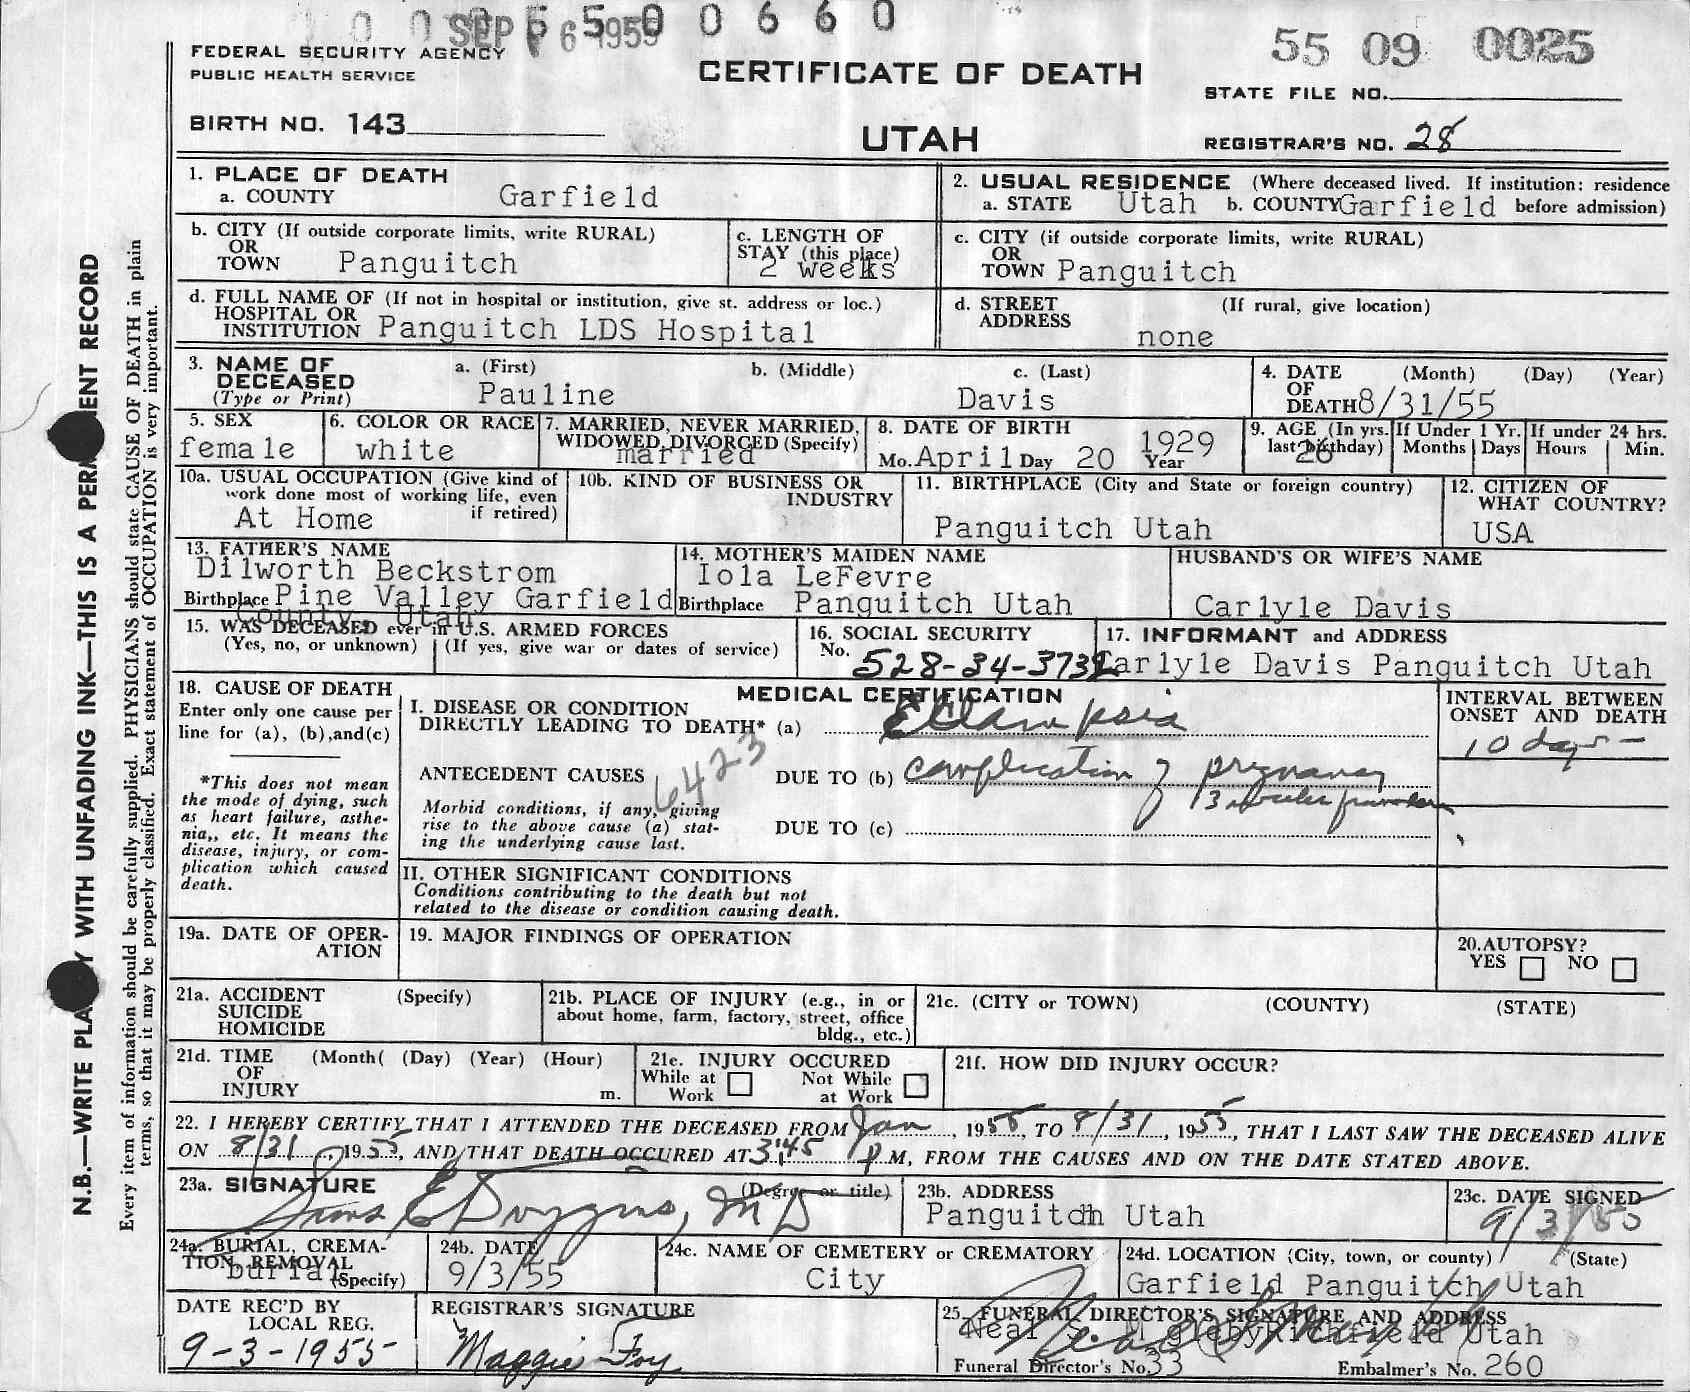 0 0 0 5 5 0 0 6 6 0
SEP 6 1955
55 09 0025
FEDERAL SECURITY AGENCY
PUBLIC HEALTH SERVICE
CERTIFICATE OF DEATH
STATE FILE NO.
BIRTH NO. 143
UTAH
REGISTRAR'S NO. 28
1. PLACE OF DEATH
a. COUNTY Garfield
2. USUAL RESIDENCE (Where deceased lived. If institution: residence
a. STATE Utah b. COUNTY Garfield before admission)
b. CITY (If outside corporate limits, write RURAL)
OR
TOWN Panguitch
c. LENGTH OF
STAY (this place)
2 weeks
c. CITY (if outside corporate limits, write RURAL)
OR
TOWN Panguitch
d. FULL NAME OF (If not in hospital or institution, give st. address or loc.)
HOSPITAL OR
INSTITUTION Panguitch LDS Hospital
d. STREET (If rural, give location)
ADDRESS
none
3. NAME OF a. (First) b. (Middle) c. (Last)
DECEASED
(Type or Print) Pauline Davis
4. DATE (Month) (Day) (Year)
OF
DEATH 8/31/55
5. SEX
female
6. COLOR OR RACE
white
7. MARRIED, NEVER MARRIED,
WIDOWED, DIVORCED (Specify)
married
8. DATE OF BIRTH
Mo. April Day 20 1929
Year
9. AGE (In yrs.
last birthday)
26
If Under 1 Yr.
Months Days
If under 24 hrs.
Hours Min.
10a. USUAL OCCUPATION (Give kind of
work done most of working life, even
if retired)
At Home
10b. KIND OF BUSINESS OR
INDUSTRY
11. BIRTHPLACE (City and State or foreign country)
Panguitch Utah
12. CITIZEN OF
WHAT COUNTRY?
USA
13. FATHER'S NAME
Dilworth Beckstrom
Birthplace Pine Valley Garfield
County, Utah
14. MOTHER'S MAIDEN NAME
Iola LeFevre
Birthplace Panguitch Utah
HUSBAND'S OR WIFE'S NAME
Carlyle Davis
15. WAS DECEASED ever in U.S. ARMED FORCES
(Yes, no, or unknown) (If yes, give war or dates of service)
16. SOCIAL SECURITY
No. 528-34-3732
17. INFORMANT and ADDRESS
Carlyle Davis Panguitch Utah
18. CAUSE OF DEATH
Enter only one cause per
line for (a), (b), and (c)
*This does not mean
the mode of dying, such
as heart failure, asthe-
nia,, etc. It means the
disease, injury, or com-
plication which caused
death.
MEDICAL CERTIFICATION
I. DISEASE OR CONDITION
DIRECTLY LEADING TO DEATH* (a) Eclampsia
ANTECEDENT CAUSES
6423
DUE TO (b) complication of pregnancy
Morbid conditions, if any, giving
rise to the above cause (a) stat-
ing the underlying cause last.
DUE TO (c)
INTERVAL BETWEEN
ONSET AND DEATH
10 days -
II. OTHER SIGNIFICANT CONDITIONS
Conditions contributing to the death but not
related to the disease or condition causing death.
19a. DATE OF OPER-
ATION
19. MAJOR FINDINGS OF OPERATION
20. AUTOPSY?
YES NO
21a. ACCIDENT (Specify)
SUICIDE
HOMICIDE
21b. PLACE OF INJURY (e.g., in or
about home, farm, factory, street, office
bldg., etc.)
21c. (CITY or TOWN) (COUNTY) (STATE)
21d. TIME (Month( (Day) (Year) (Hour)
OF
INJURY m.
21e. INJURY OCCURED
While at Not While
Work at Work
21f. HOW DID INJURY OCCUR?
22. I HEREBY CERTIFY THAT I ATTENDED THE DECEASED FROM Jan, 1955, TO 8/31, 1955, THAT I LAST SAW THE DECEASED ALIVE
ON 8/31, 1955, AND THAT DEATH OCCURED AT 3:45 P M, FROM THE CAUSES AND ON THE DATE STATED ABOVE.
23a. SIGNATURE (Degree or title)
Sims E Duggins, MD
23b. ADDRESS
Panguitch Utah
23c. DATE SIGNED
9/3/55
24a. BURIAL, CREMA-
TION, REMOVAL
(Specify)
burial
24b. DATE
9/3/55
24c. NAME OF CEMETERY or CREMATORY
City
24d. LOCATION (City, town, or county) (State)
Garfield Panguitch Utah
DATE REC'D BY
LOCAL REG.
9-3-1955
REGISTRAR'S SIGNATURE
Maggie Foy
25. FUNERAL DIRECTOR'S SIGNATURE AND ADDRESS
Neal S. Magleby Richfield Utah
Funeral Director's No. 33 Embalmer's No. 260
N.B.—WRITE PLAINLY WITH UNFADING INK—THIS IS A PERMANENT RECORD
Every item of information should be carefully supplied. PHYSICIANS should state CAUSE OF DEATH in plain
terms, so that it may be properly classified. Exact statement of OCCUPATION is very important.